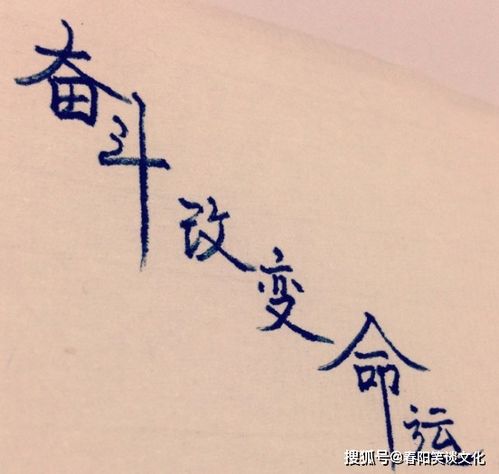 奋斗改变命运
搜狐号@春阳笑谈文化